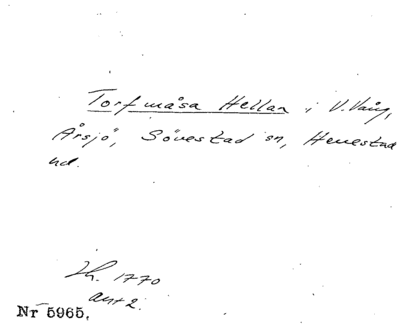 Torfmåsa Hellan i V. Vång,
Årsjö, Sövestad sn, Herrestad
hd.
Lh. 1770
ant 2.
Nr 5965.